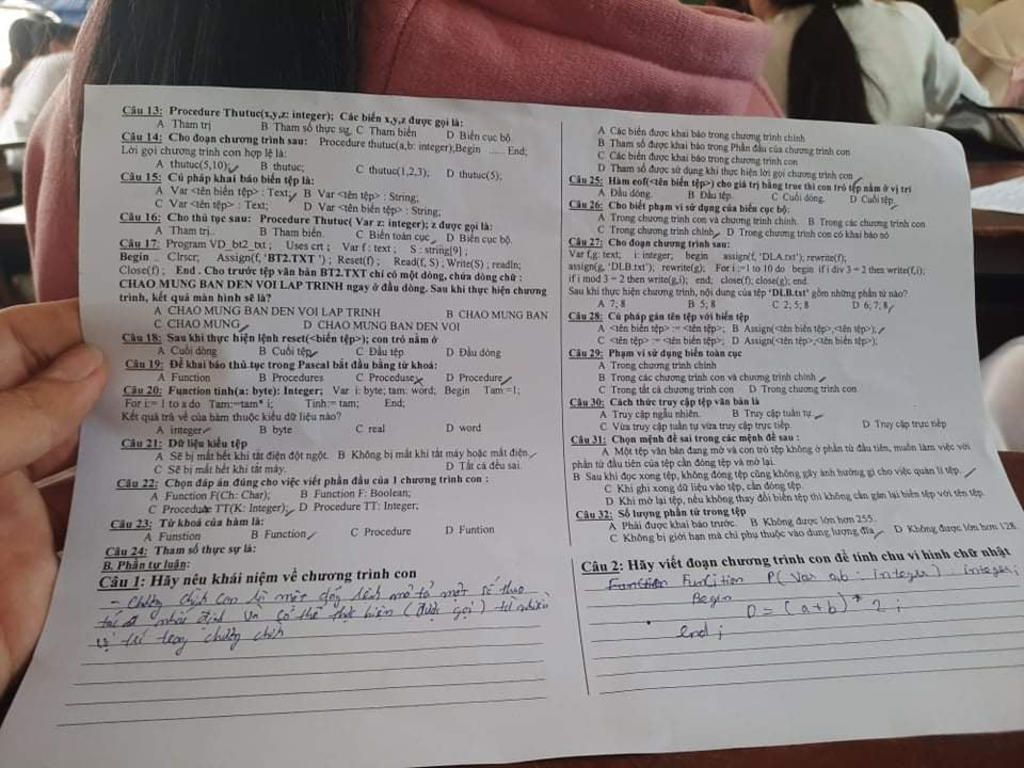 Câu 13: Procedure Thutuc(x,y,z: integer); Các biến x,y,z được gọi là:
A Tham trị B Tham số thực sự. C Tham biến D Biến cục bộ
Câu 14: Cho đoạn chương trình sau: Procedure thutuc(a,b: integer);Begin ...... End;
Lời gọi chương trình con hợp lệ là:
A thutuc(5,10); B thutuc; C thutuc(1,2,3); D thutuc(5);
Câu 15: Cú pháp khai báo biến tệp là:
A Var <tên biến tệp> : Text; B Var <tên tệp> : String;
C Var <tên tệp> : Text; D Var <tên biến tệp> : String;
Câu 16: Cho thủ tục sau: Procedure Thutuc( Var z: integer); z được gọi là:
A Tham trị.. B Tham biến. C Biến toàn cục D Biến cục bộ.
Câu 17: Program VD_bt2_txt ; Uses crt ; Var f : text ; S : string[9] ;
Begin .. Clrscr; Assign(f, 'BT2.TXT ') ; Reset(f) ; Read(f, S) ; Write(S) ; readln;
Close(f) ; End . Cho trước tệp văn bản BT2.TXT chỉ có một dòng, chứa dòng chữ :
CHAO MUNG BAN DEN VOI LAP TRINH ngay ở đầu dòng. Sau khi thực hiện chương
trình, kết quả màn hình sẽ là?
A CHAO MUNG BAN DEN VOI LAP TRINH B CHAO MUNG BAN
C CHAO MUNG D CHAO MUNG BAN DEN VOI
Câu 18: Sau khi thực hiện lệnh reset(<biến tệp>); con trỏ nằm ở
A Cuối dòng B Cuối tệp C Đầu tệp D Đầu dòng
Câu 19: Để khai báo thủ tục trong Pascal bắt đầu bằng từ khoá:
A Function B Procedures C Proceduse D Procedure
Câu 20: Function tinh(a: byte): Integer; Var i: byte; tam: word; Begin Tam:=1;
For i:= 1 to a do Tam:=tam* i; Tinh:= tam; End;
Kết quả trả về của hàm thuộc kiểu dữ liệu nào?
A integer B byte C real D word
Câu 21: Dữ liệu kiểu tệp
A Sẽ bị mất hết khi tắt điện đột ngột. B Không bị mất khi tắt máy hoặc mất điện.
C Sẽ bị mất hết khi tắt máy. D Tất cả đều sai.
Câu 22: Chọn đáp án đúng cho việc viết phần đầu của 1 chương trình con :
A Function F(Ch: Char); B Function F: Boolean;
C Procedure TT(K: Integer); D Procedure TT: Integer;
Câu 23: Từ khoá của hàm là:
A Funstion B Function C Procedure D Funtion
Câu 24: Tham số thực sự là:
B. Phần tự luận:
Câu 1: Hãy nêu khái niệm về chương trình con
- Chương trình con là một dãy lệnh mô tả một số thao
tác nhất định và có thể thực hiện (được gọi) từ nhiều
vị trí trong chương trình
A Các biến được khai báo trong chương trình chính
B Tham số được khai báo trong Phần đầu của chương trình con
C Các biến được khai báo trong chương trình con
D Tham số được sử dụng khi thực hiện lời gọi chương trình con
Câu 25: Hàm eof(<tên biến tệp>) cho giá trị bằng true thì con trỏ tệp nằm ở vị trí
A Đầu dòng. B Đầu tệp. C Cuối dòng. D Cuối tệp.
Câu 26: Cho biết phạm vi sử dụng của biến cục bộ:
A Trong chương trình con và chương trình chính. B Trong các chương trình con
C Trong chương trình chính D Trong chương trình con có khai báo nó
Câu 27: Cho đoạn chương trình sau:
Var f,g: text; i: integer; begin assign(f, 'DLA.txt'); rewrite(f);
assign(g, 'DLB.txt'); rewrite(g); For i :=1 to 10 do begin if i div 3 = 2 then write(f,i);
if i mod 3 = 2 then write(g,i); end; close(f); close(g); end.
Sau khi thực hiện chương trình, nội dung của tệp 'DLB.txt' gồm những phần tử nào?
A 7; 8 B 5; 8 C 2; 5; 8 D 6; 7; 8
Câu 28: Cú pháp gán tên tệp với biến tệp
A <tên biến tệp> := <tên tệp>; B Assign(<tên biến tệp>,<tên tệp>);
C <tên tệp> := <tên biến tệp>; D Assign(<tên tệp>,<tên biến tệp>);
Câu 29: Phạm vi sử dụng biến toàn cục
A Trong chương trình chính
B Trong các chương trình con và chương trình chính
C Trong tất cả chương trình con D Trong chương trình con
Câu 30: Cách thức truy cập tệp văn bản là
A Truy cập ngẫu nhiên. B Truy cập tuần tự.
C Vừa truy cập tuần tự vừa truy cập trực tiếp. D Truy cập trực tiếp
Câu 31: Chọn mệnh đề sai trong các mệnh đề sau :
A Một tệp văn bản đang mở và con trỏ tệp không ở phần tử đầu tiên, muốn làm việc với
phần tử đầu tiên của tệp cần đóng tệp và mở lại.
B Sau khi đọc xong tệp, không đóng tệp cũng không gây ảnh hưởng gì cho việc quản lí tệp.
C Khi ghi xong dữ liệu vào tệp, cần đóng tệp.
D Khi mở lại tệp, nếu không thay đổi biến tệp thì không cần gán lại biến tệp với tên tệp.
Câu 32: Số lượng phần tử trong tệp
A Phải được khai báo trước. B Không được lớn hơn 255.
C Không bị giới hạn mà chỉ phụ thuộc vào dung lượng đĩa D Không được lớn hơn 128.
Câu 2: Hãy viết đoạn chương trình con để tính chu vi hình chữ nhật
Function P( Var a,b : integer) : integer;
Begin
D = (a+b) * 2 ;
end ;